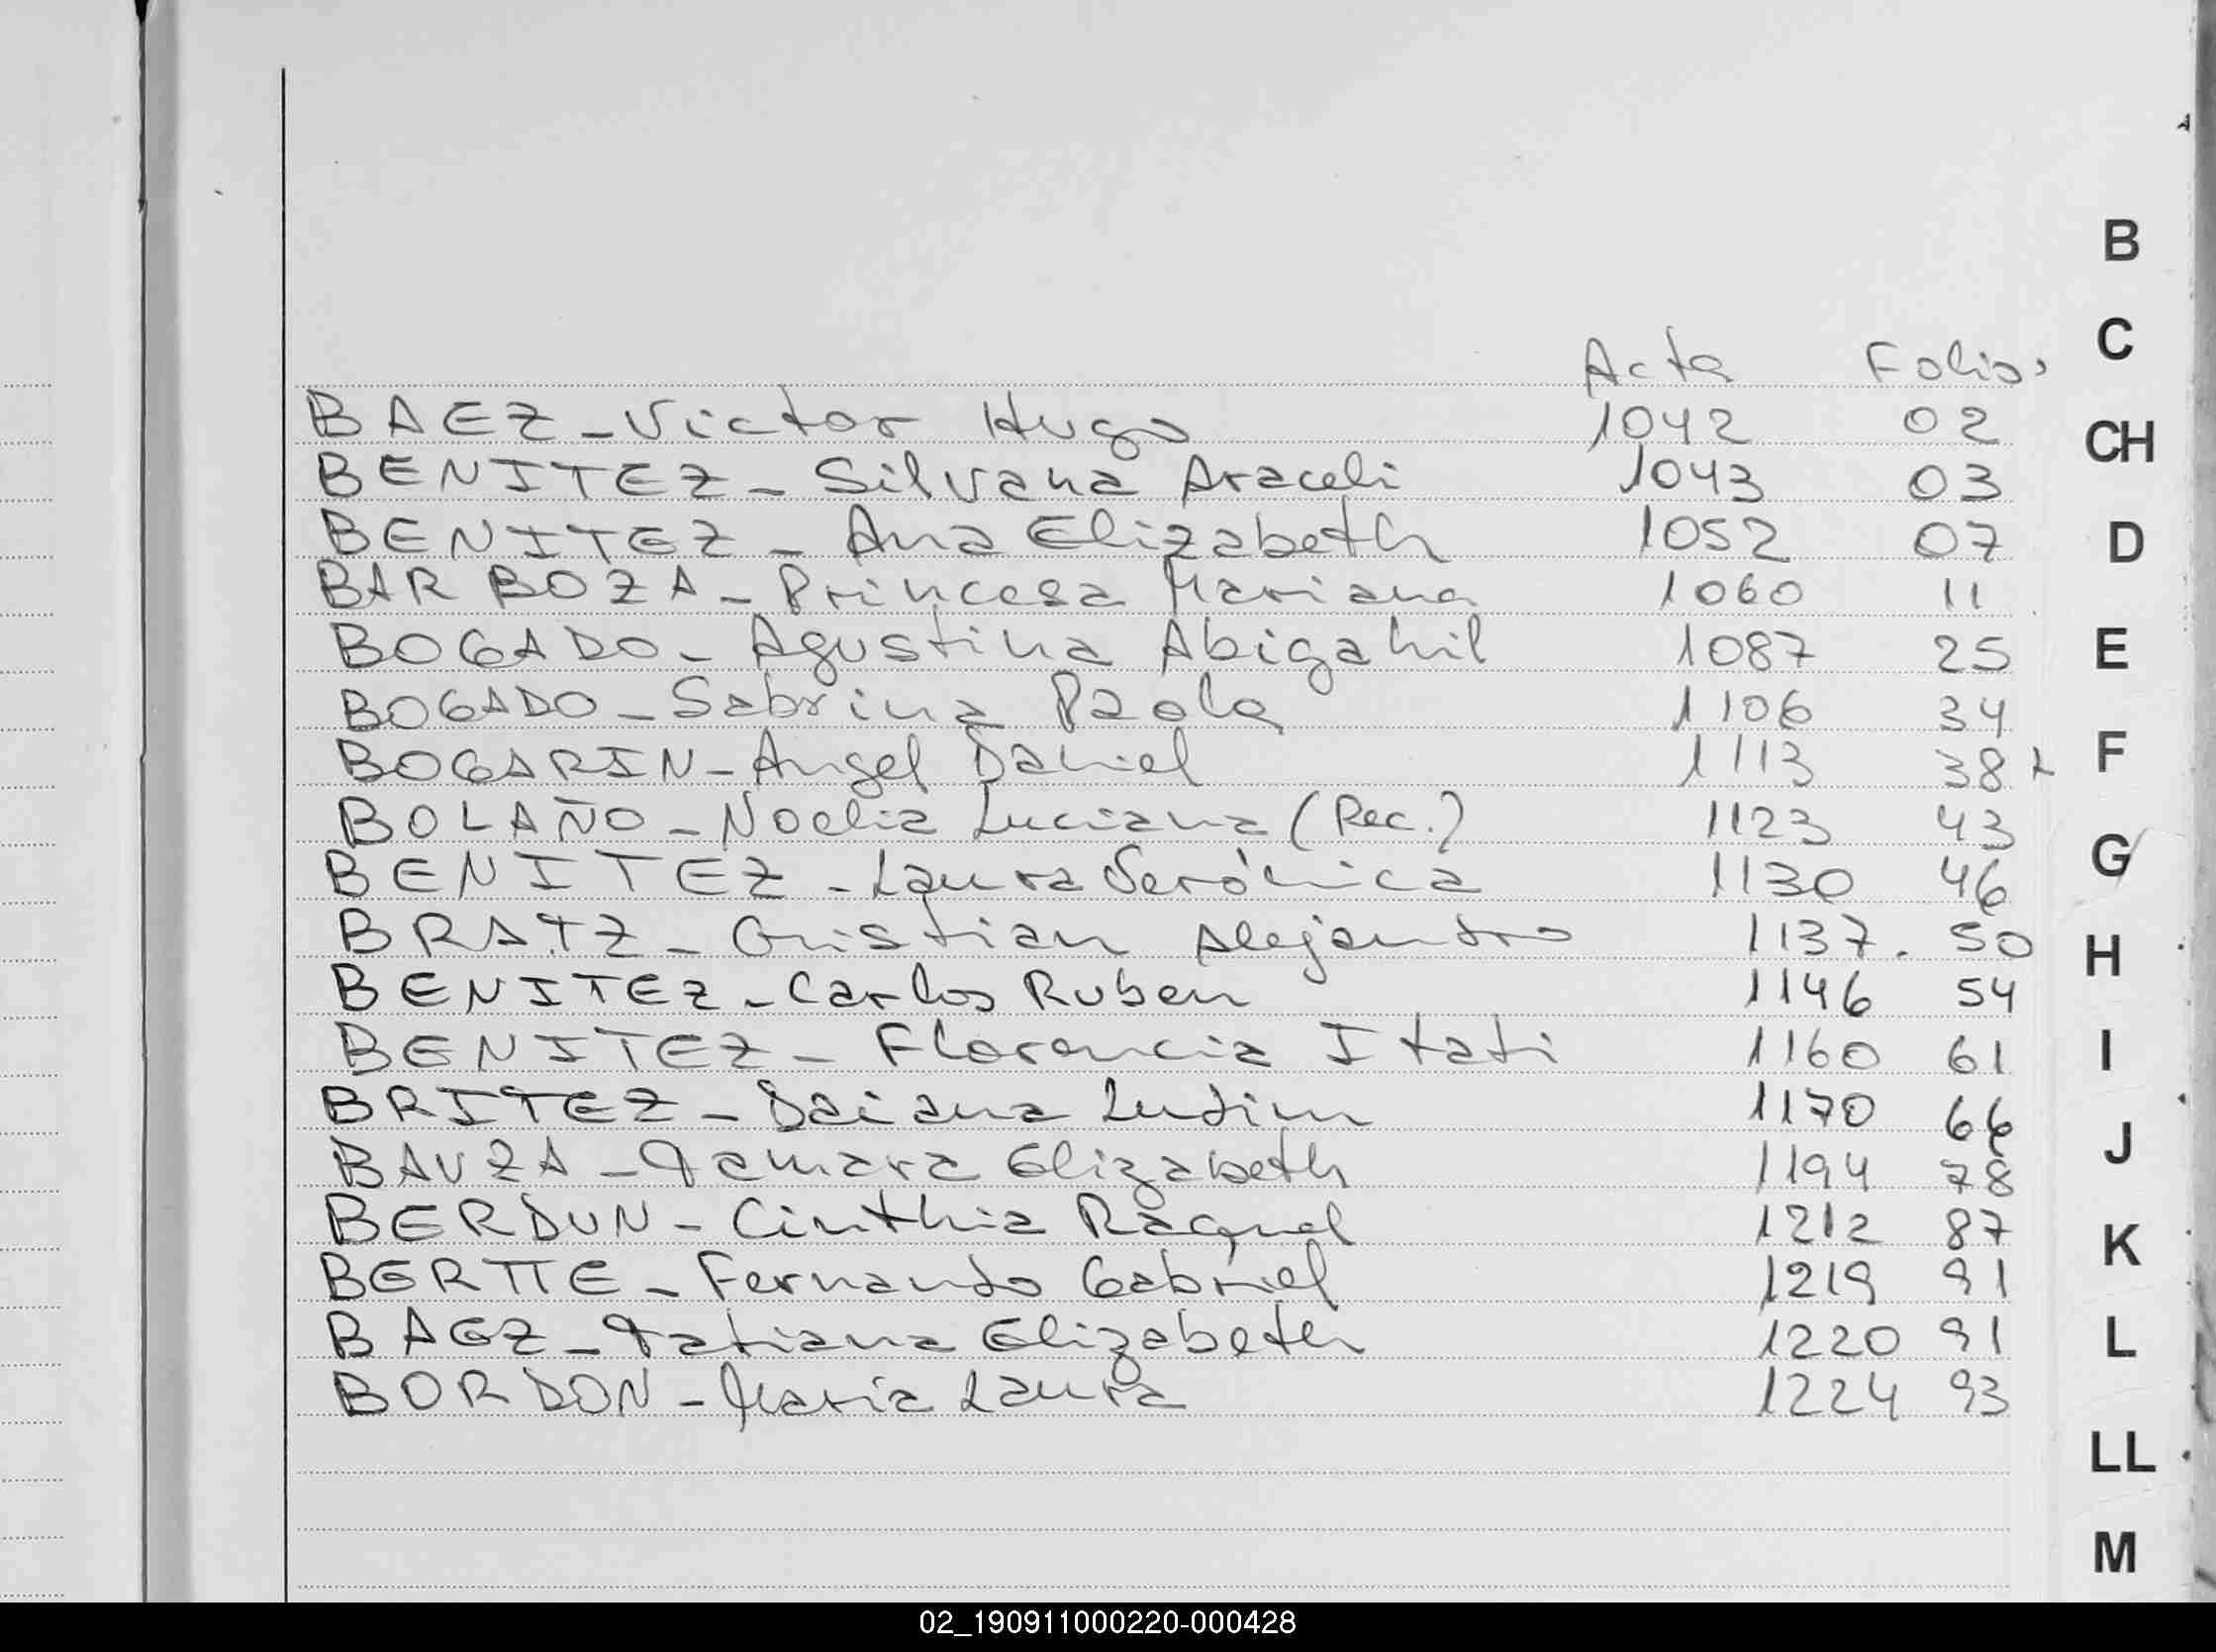 Acta Folio
BAEZ - Victor Hugo 1042 02
BENITEZ - Silvana Araceli 1043 03
BENITEZ - Ana Elizabeth 1052 07
BAR BOZA - Princesa Mariana 1060 11
BOGADO - Agustina Abigahil 1087 25
BOGADO - Sabrina Paola 1106 34
BOGARIN - Angel Daniel 1113 38
BOLAÑO - Noelia Luciana (Rec.) 1123 43
BENITEZ - Laura Verónica 1130 46
BRATZ - Cristian Alejandro 1137. 50
BENITEZ - Carlos Ruben 1146 54
BENITEZ - Florencia Itati 1160 61
BRITEZ - Daiana 1170 66
BAUZA - Tamara Elizabeth 1194 78
BERDUN - Cinthia Raquel 1212 87
Fernando Gabriel 1219 91
BAEZ - Tatiana Elizabeth 1220 91
BORDON - Maria Laura 1224 93
B
C
CH
D
E
F
G
H
I
J
K
L
LL
M
02_190911000220-000428